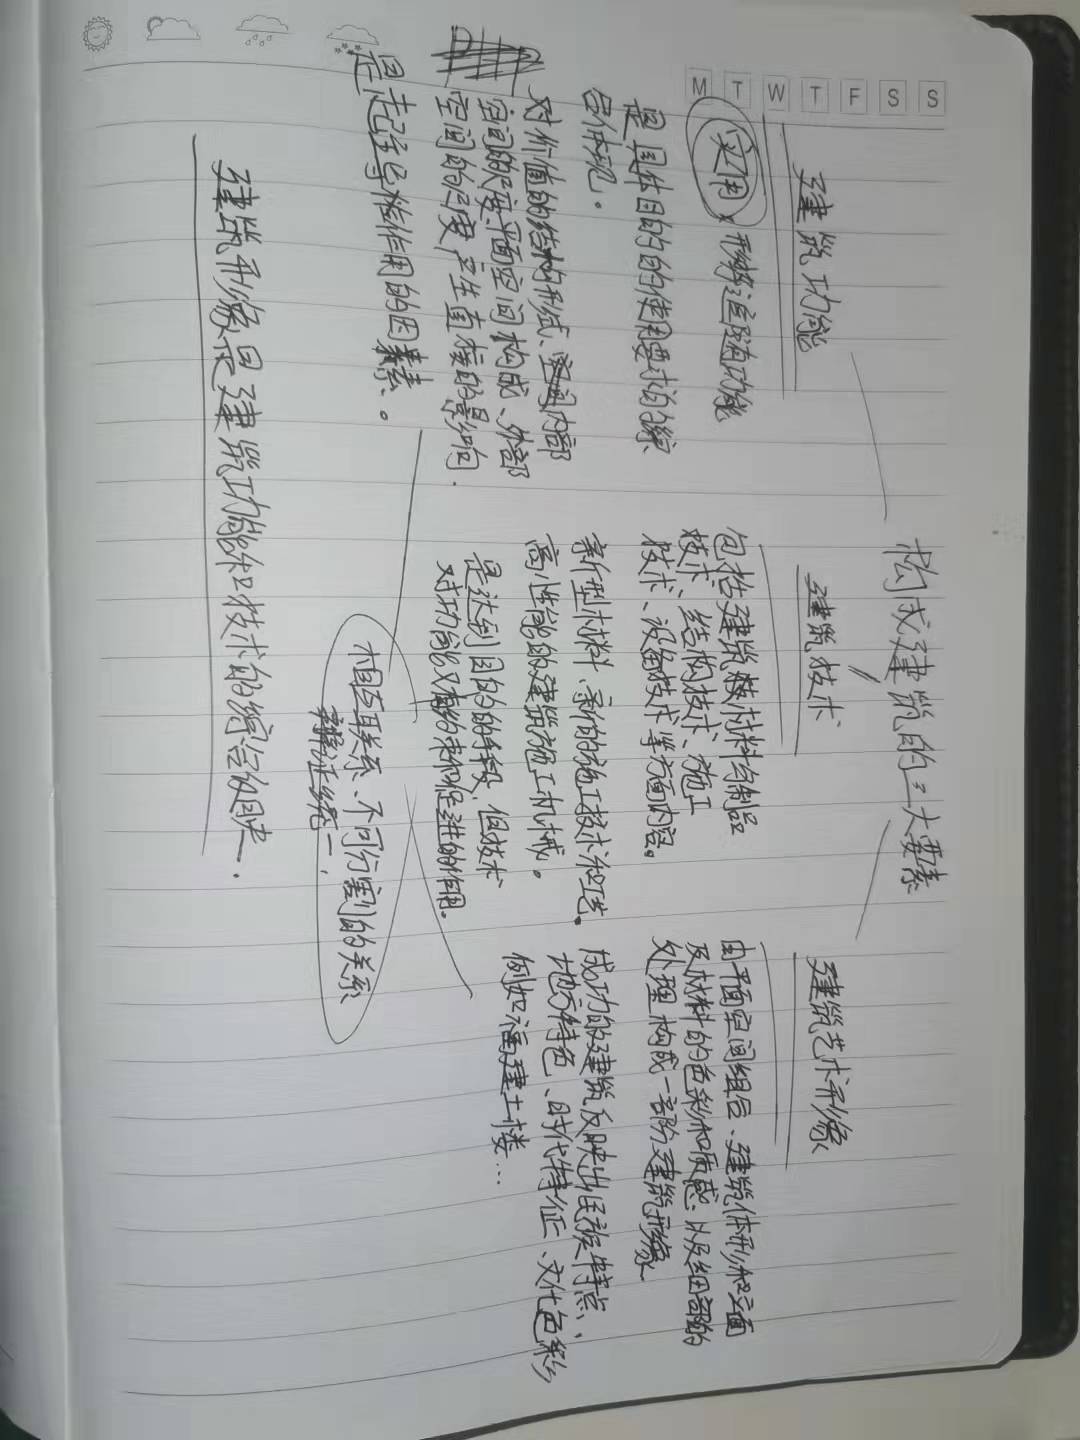 M T W T F S S
构成建筑的三大要素
建筑功能
实用 形势追随功能
是具体目的的使用要求的综
合体现。
对价值的结构形式、空间内部
空间的尺度、平面空间构成、外部
空间的尺度产生直接的影响.
是起主导作用的因素。
建筑技术
包括建筑材料与制品
技术、结构技术、施工
技术、设备技术等方面内容。
新型材料、新的施工技术和工艺。
高性能的建筑施工机械。
是达到目的的手段,但技术
对功能又有约束和促进的作用。
建筑艺术形象
由平面空间组合、建筑体形和立面
及材料的色彩和质感、以及细部的
处理构成一部阶建筑形象
成功的建筑反映出民族特点,
地方特色、时代特征、文化色彩
例如福建土楼...
相互联系、不可分割的关系
辩证统一.
建筑形象是建筑功能和技术的综合反映.